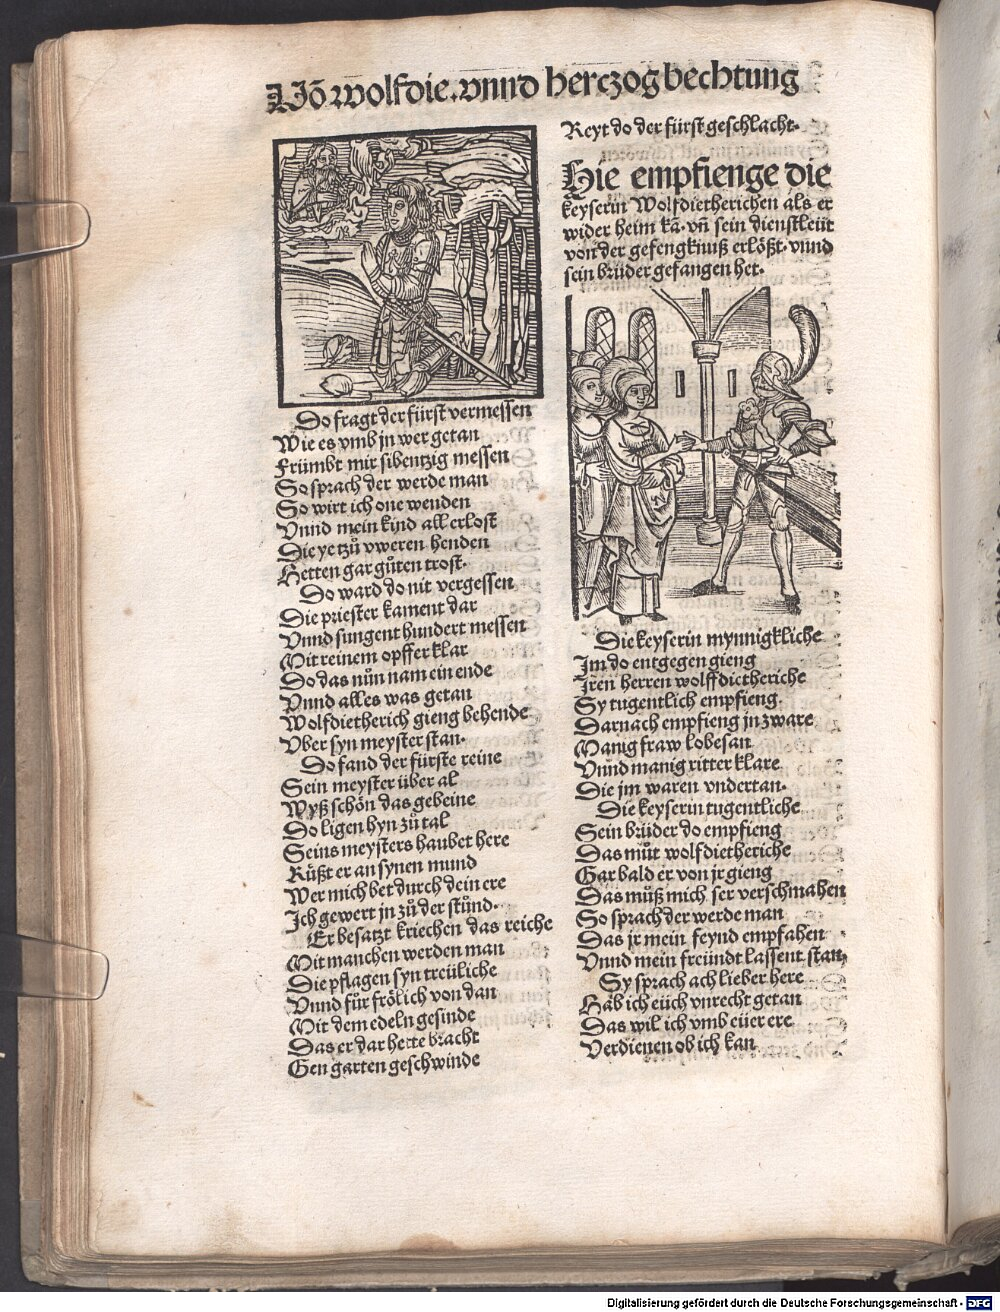 Võ wolfdie. vnnd herczog bechtung
So fragt der fürst vermessen
Wie es vmb jn wer getan
Frümbt mir sibentzig messen
So sprach der werde man
So wirt ich one wenden
Vnnd mein kind all erlost
Die yetzů vweren henden
Hetten gar gůten trost.
Do ward do nit vergessen
Die priester kament dar
Vnnd sungent hundert messen
Mit reinem opffer klar
Do das nůn nam ein ende
Vnnd alles was getan
Wolfdietherich gieng behende
Vber syn meyster stan.
Do fand der fürste reine
Sein meyster über al
Wyß schön das gebeine
Do ligen hyn zů tal
Seins meysters haubet here
Kůßt er an synen mund
Wer mich bet durch dein ere
Ich gewert jn zů der stůnd.
Er besatzt kriechen das reiche
Mit manchen werden man
Die pflagen syn treüliche
Vnnd fůr frölich von dan
Mit dem edeln gesinde
Das er dar hette bracht
Gen garten geschwinde
Reyt do der fürst geschlacht.
Hie empfienge die
keyserin Wolfdietherichen als er
wider heim kã. vñ sein dienstleüt
von der gefengknuß erlößt. vnnd
sein brüder gefangen het.
Die keyserin mynnigkliche
Im do entgegen gieng
Iren herren wolffdietheriche
Sy tugentlich empfieng.
Darnach empfieng jn zware
Manig fraw lobesan
Vnnd manig ritter klare
Die jm waren vndertan.
Die keyserin tugentliche
Sein brüder do empfieng
Das můt wolfdietheriche
Gar bald er von jr gieng
Das můß mich ser verschmahen
So sprach der werde man
Das jr mein feynd empfahen
Vnnd mein freündt lassent stan.
Sy sprach ach lieber here
Hab ich eüch vnrecht getan
Das wil ich vmb eüer ere
Verdienen ob ich kan
Digitalisierung gefördert durch die Deutsche Forschungsgemeinschaft - DFG